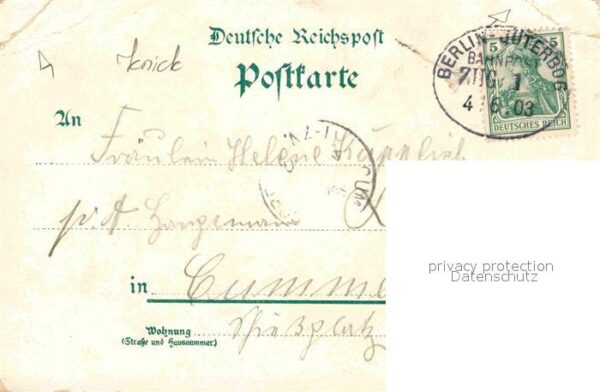 Deutsche Reichspost
Knick
Postkarte
BERLIN-JÜTERBOG
BAHNPOST
ZUG 1
4 6 03
5 5
DEUTSCHES REICH
An
Fräulein Helene
p. A.
in Cumme
privacy protection
Datenschutz
Wohnung
(Straße und Hausnummer)
Schießplatz